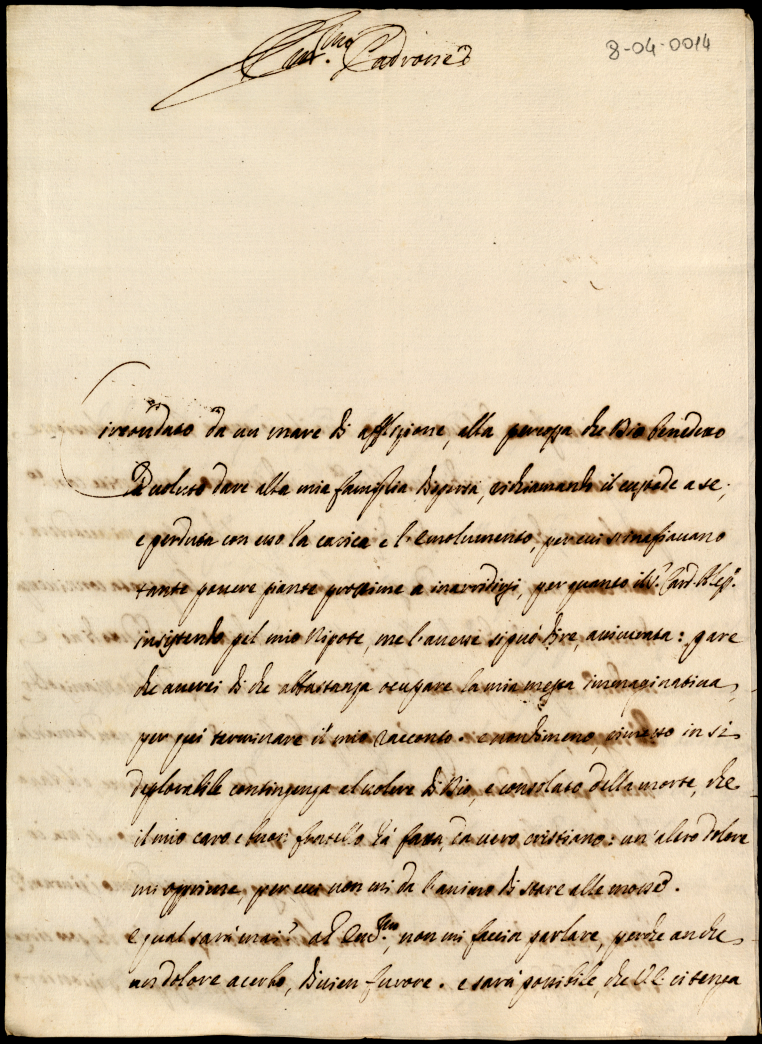 Em.mo Padrone
8-04-0014
Circondato da un mare di afflizione, alla percossa che Dio benedetto
à voluto dare alla mia famiglia richiamando il custode a se;
e perduta con esso la carica e l'emolumento, per cui s'inafiavano
tante povere piante prossime a inarridirsi, per quanto il S.r Card.
insistendo pel mio Nipote, me l'avesse si può dire, : pare
che averei di che abbastanza ocupare la mia mesta immaginativa,
per poi terminare il mio racconto. e nondimeno, rimesso in si
deplorabile contingenza al volere di Dio, e consolato della morte, che
il mio caro e buon fratello à fatta, da vero cristiano: un'altro dolore
mi opprime, per cui non mi dà l'animo di stare alle mosse.
e qual sarà mai? ah Em.mo, non mi faccia parlare, perche anche
un dolore acerbo, divien furore. e sarà possibile, che V.E. ci tenga